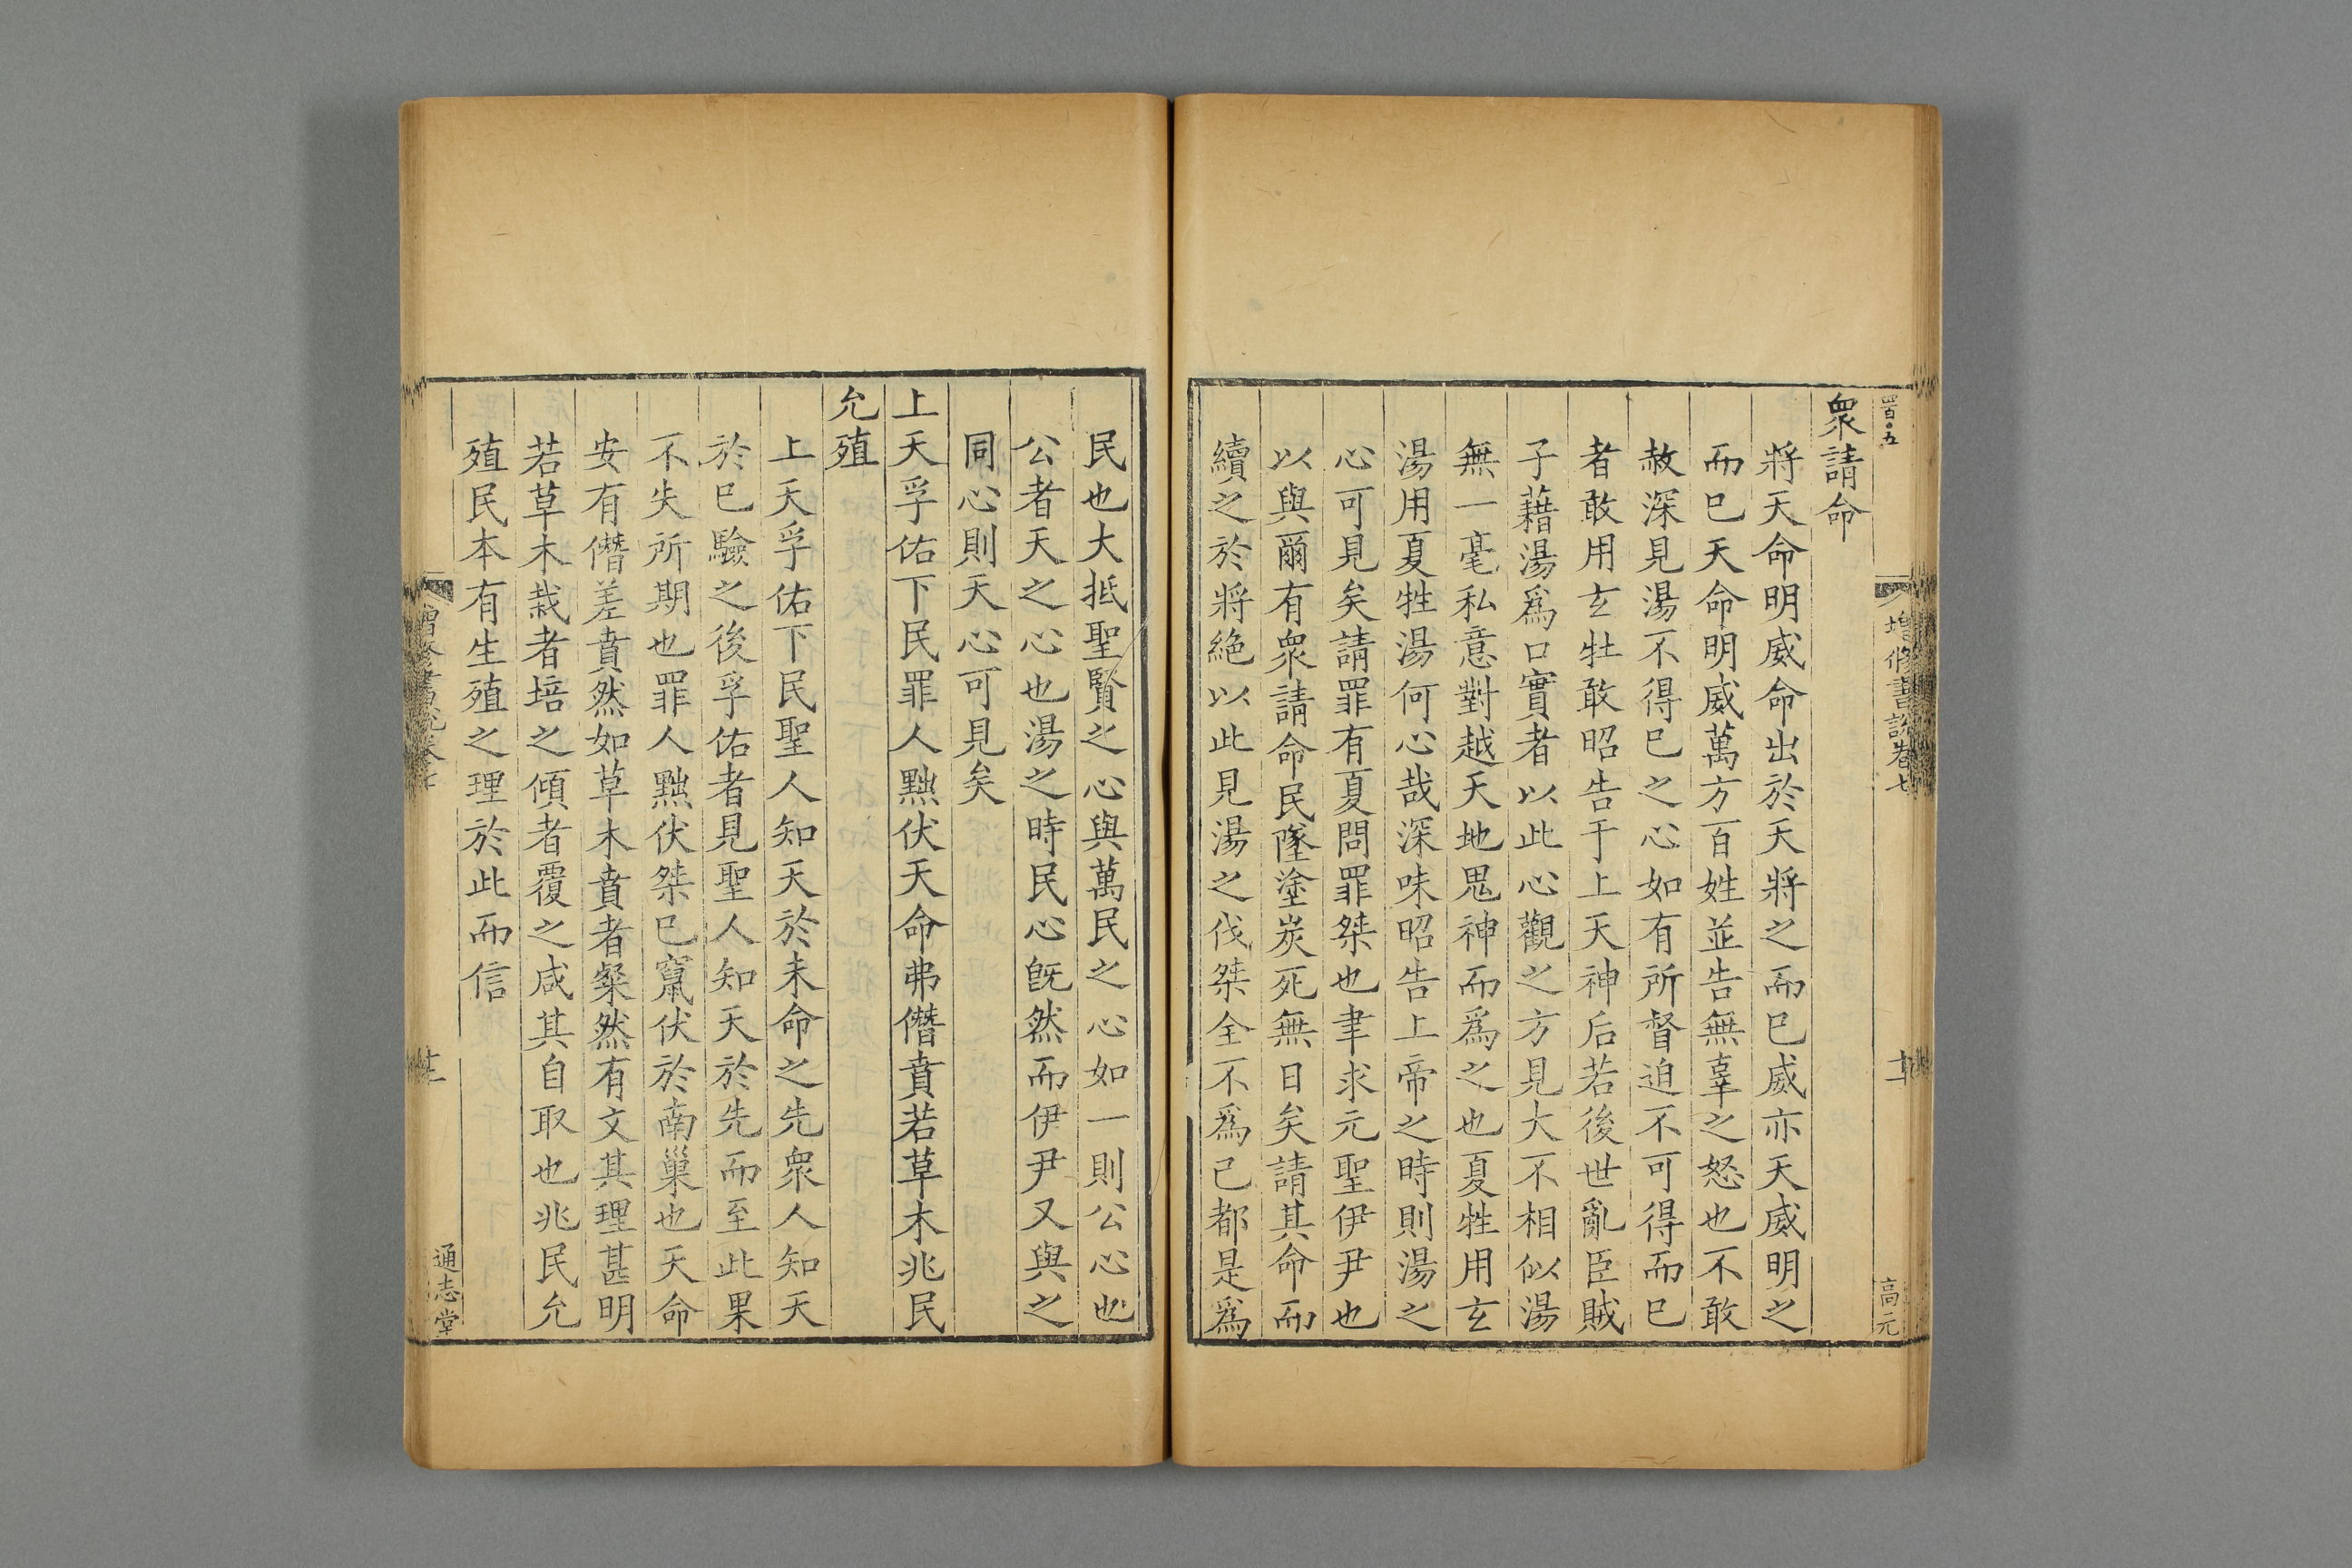 四百五
增修書說卷七
高元
衆請命
將天命明威命出於天將之而已威亦天威明之
而已天命明威萬方百姓並告無辜之怒也不敢
赦深見湯不得已之心如有所督迫不可得而已
者敢用玄牡敢昭告于上天神后若後世亂臣賊
子藉湯爲口實者以此心觀之方見大不相似湯
無一毫私意對越天地鬼神而爲之也夏牲用玄
湯用夏牲湯何心哉深味昭告上帝之時則湯之
心可見矣請罪有夏問罪桀也聿求元聖伊尹也
以與爾有衆請命民墜塗炭死無日矣請其命而
續之於將絶以此見湯之伐桀全不爲己都是爲
民也大抵聖賢之心與萬民之心如一則公心也
公者天之心也湯之時民心旣然而伊尹又與之
同心則天心可見矣
上天孚佑下民罪人黜伏天命弗僭賁若草木兆民
允殖
上天孚佑下民聖人知天於未命之先衆人知天
於已驗之後孚佑者見聖人知天於先而至此果
不失所期也罪人黜伏桀已竄伏於南巢也天命
安有僭差賁然如草木賁者粲然有文其理甚明
若草木栽者培之傾者覆之咸其自取也兆民允
殖民本有生殖之理於此而信
通志堂